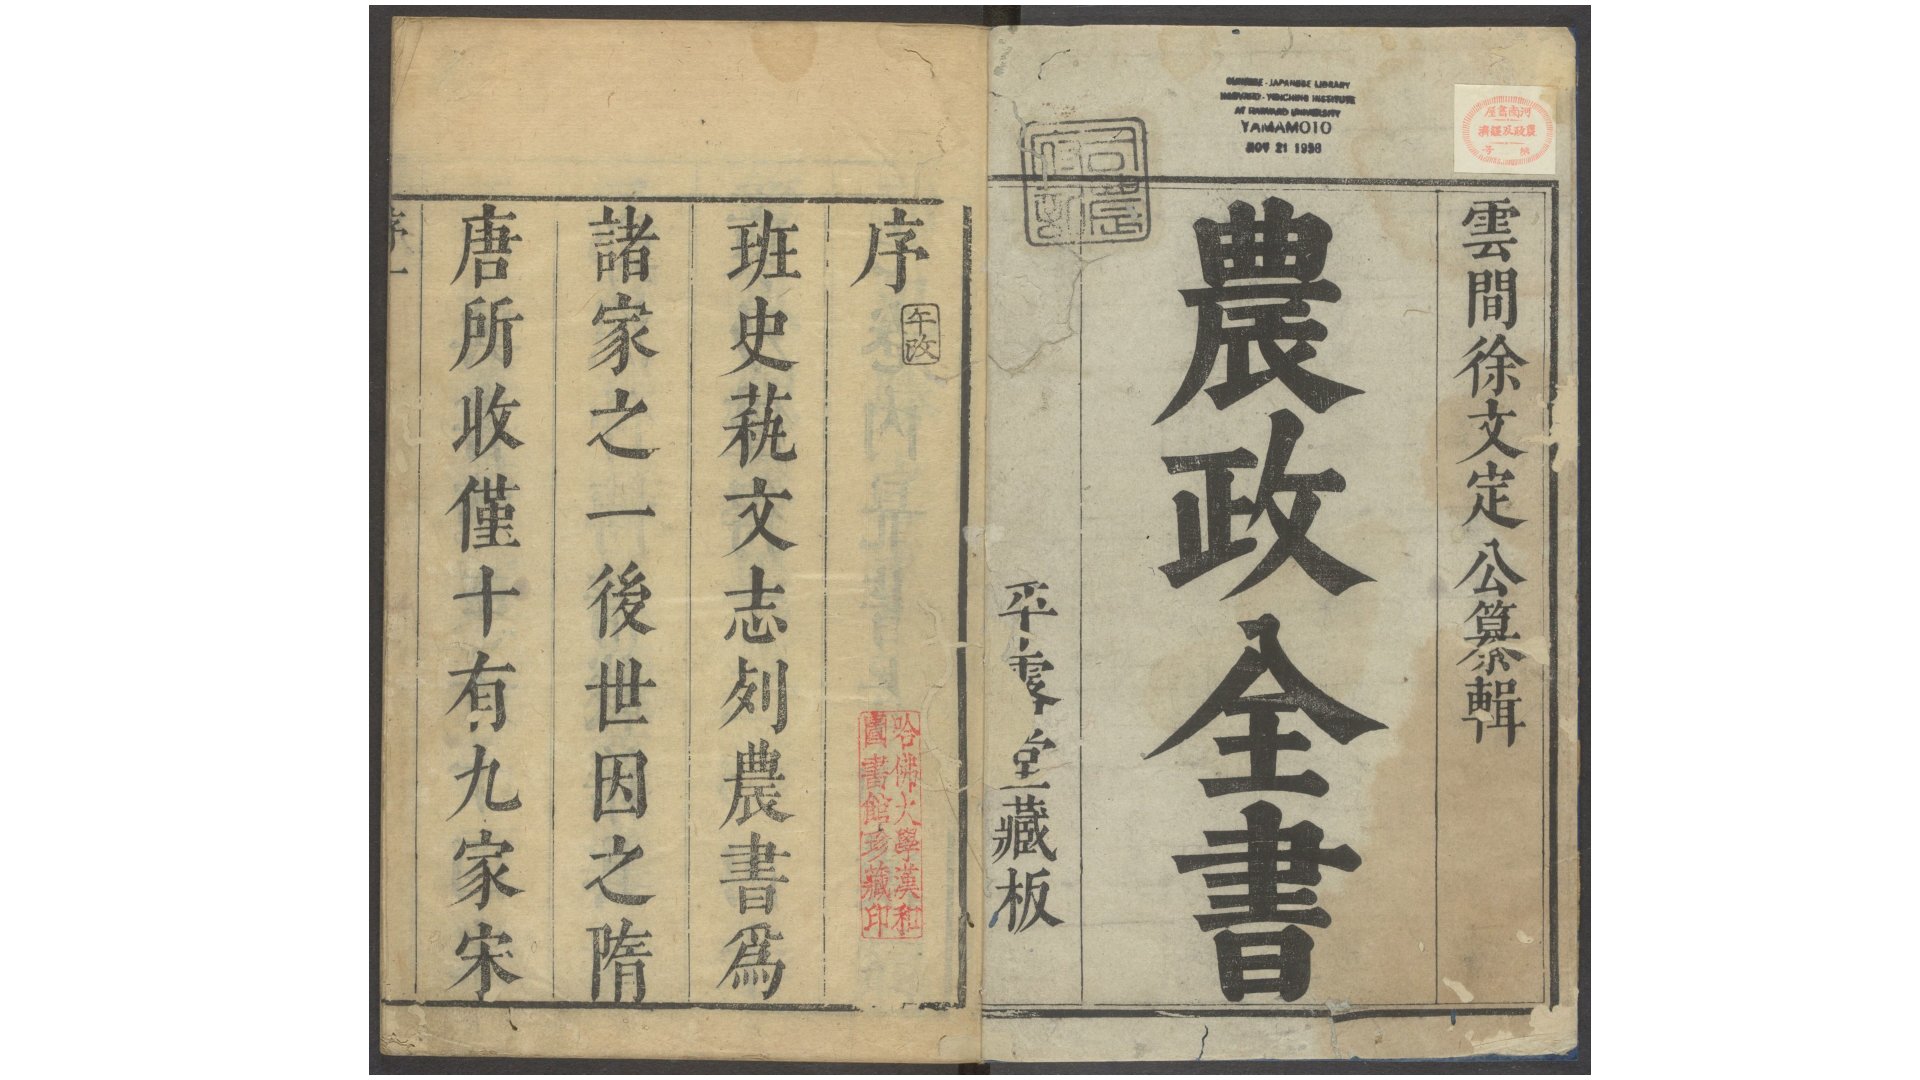 雲間徐文定公纂輯
農政全書
平露堂藏板
CHINESE - JAPANESE LIBRARY
HARVARD - YENCHING INSTITUTE
AT HARVARD UNIVERSITY
YAMAMOTO
NOV 21 1936
序
午改
哈佛大學漢和
圖書館珍藏印
班史蓺文志列農書爲
諸家之一後世因之隋
唐所收僅十有九家宋
序一